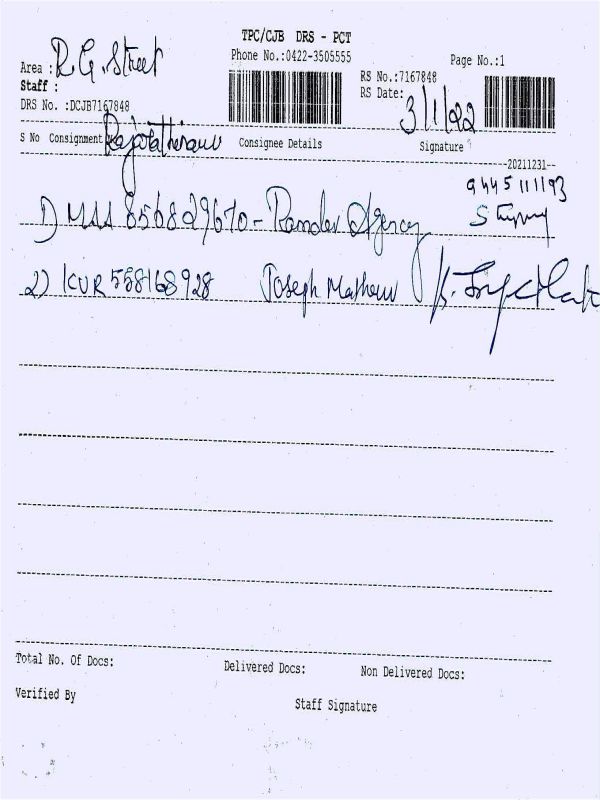 TPC/CJB DRS - PCT
Phone No.:0422-3505555
Page No.:1
Area : R.G. Street
Staff :
RS No.:7167848
RS Date: 3/1/22
DRS No. :DCJB7167848
S No Consignment Consignee Details Signature
20211231
9445111193
1) MAA 856829670 - Ramdev Agency
2) KUR 558168928 Joseph Mathew
Total No. Of Docs: Delivered Docs: Non Delivered Docs:
Verified By Staff Signature